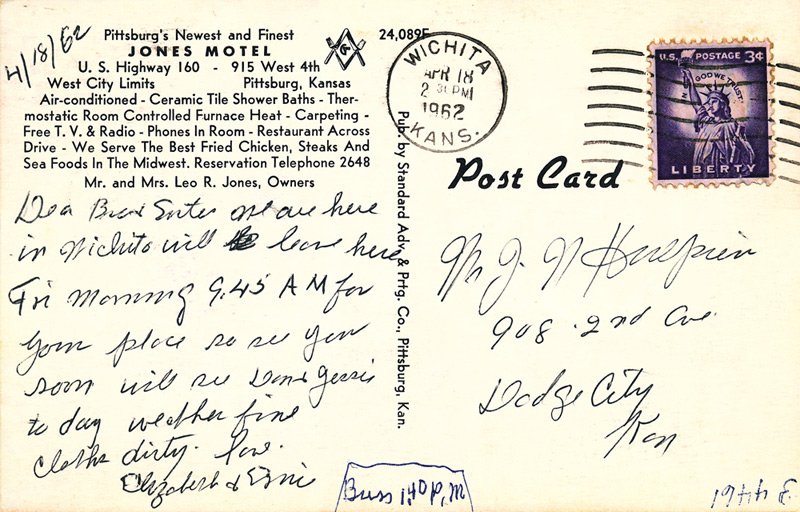 4/18/62
Pittsburg's Newest and Finest
JONES MOTEL
U. S. Highway 160 - 915 West 4th
West City Limits Pittsburg, Kansas
Air-conditioned - Ceramic Tile Shower Baths - Ther-
mostatic Room Controlled Furnace Heat - Carpeting -
Free T. V. & Radio - Phones In Room - Restaurant Across
Drive - We Serve The Best Fried Chicken, Steaks And
Sea Foods In The Midwest. Reservation Telephone 2648
Mr. and Mrs. Leo R. Jones, Owners
G
24,089F
WICHITA
APR 18
2 30 PM
1962
KANS.
U.S. POSTAGE 3¢
IN GOD WE TRUST
LIBERTY
Post Card
Pub. by Standard Adv. & Prtg. Co., Pittsburg, Kan.
Dea we are here
in Wichita will leave here
Fri Morning 9.45 A M for
your place so see you
soon will see
to day weather fine
cloths dirty. Love.
Elizabeth & Ernie
Buss 1:40 P.M
M J N
908 2nd Ave.
Dodge City
Kan